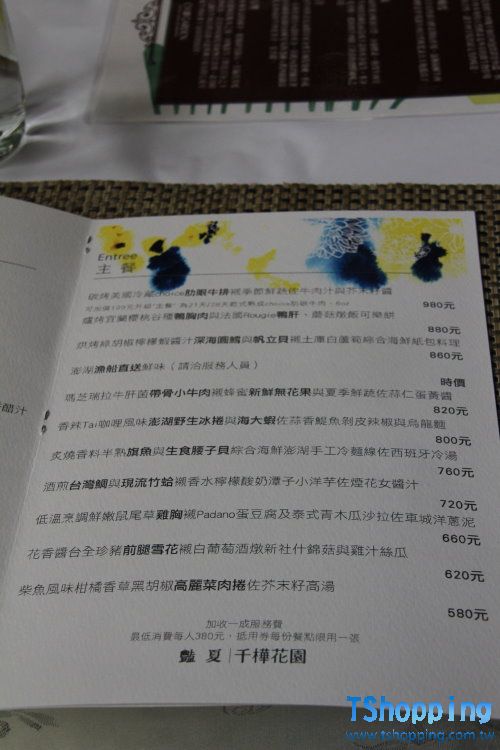 Entree
主餐
碳烤美國冷藏choice肋眼牛排襯季節鮮蔬佐牛肉汁與芥末籽醬
可加價199元升級"主餐"為21天/28天乾式熟成choice肋眼牛肉, 6oz
980元
爐烤宜蘭櫻桃谷種鴨胸肉與法國Rougie鴨肝、蘑菇燉飯可樂餅
880元
烘烤綠胡椒檸檬蝦醬汁深海圓鱈與帆立貝襯土庫白蘆筍綜合海鮮紙包料理
860元
澎湖漁船直送鮮味（請洽服務人員）
時價
瑪芝瑞拉牛肝菌帶骨小牛肉襯蜂蜜新鮮無花果與夏季鮮蔬佐蒜仁蛋黃醬
820元
香辣Tai咖哩風味澎湖野生冰捲與海大蝦佐蒜香鯷魚剝皮辣椒與烏龍麵
800元
炙燒香料半熟旗魚與生食腰子貝綜合海鮮澎湖手工冷麵線佐西班牙冷湯
760元
酒煎台灣鯛與現流竹蛤襯香水檸檬酸奶潭子小洋芋佐煙花女醬汁
720元
低溫烹調鮮嫩鼠尾草雞胸襯Padano蛋豆腐及泰式青木瓜沙拉佐車城洋蔥泥
660元
花香醬台全珍豬前腿雪花襯白葡萄酒燉新社什錦菇與雞汁絲瓜
620元
柴魚風味柑橘香草黑胡椒高麗菜肉捲佐芥末籽高湯
580元
加收一成服務費
最低消費每人380元，抵用券每份餐點限用一張
豔夏|千樺花園
醋汁
TShopping
www.tshopping.com.tw